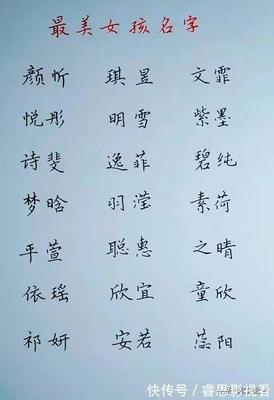 最美女孩名字
颜忻 琪昱 文霏
悦彤 明雪 紫墨
诗斐 逸菲 碧纯
梦晗 羽滢 素荷
平萱 聪惠 之晴
依瑶 欣宜 童欣
祁妍 安若 蕊阳
快传号/睿思影视看